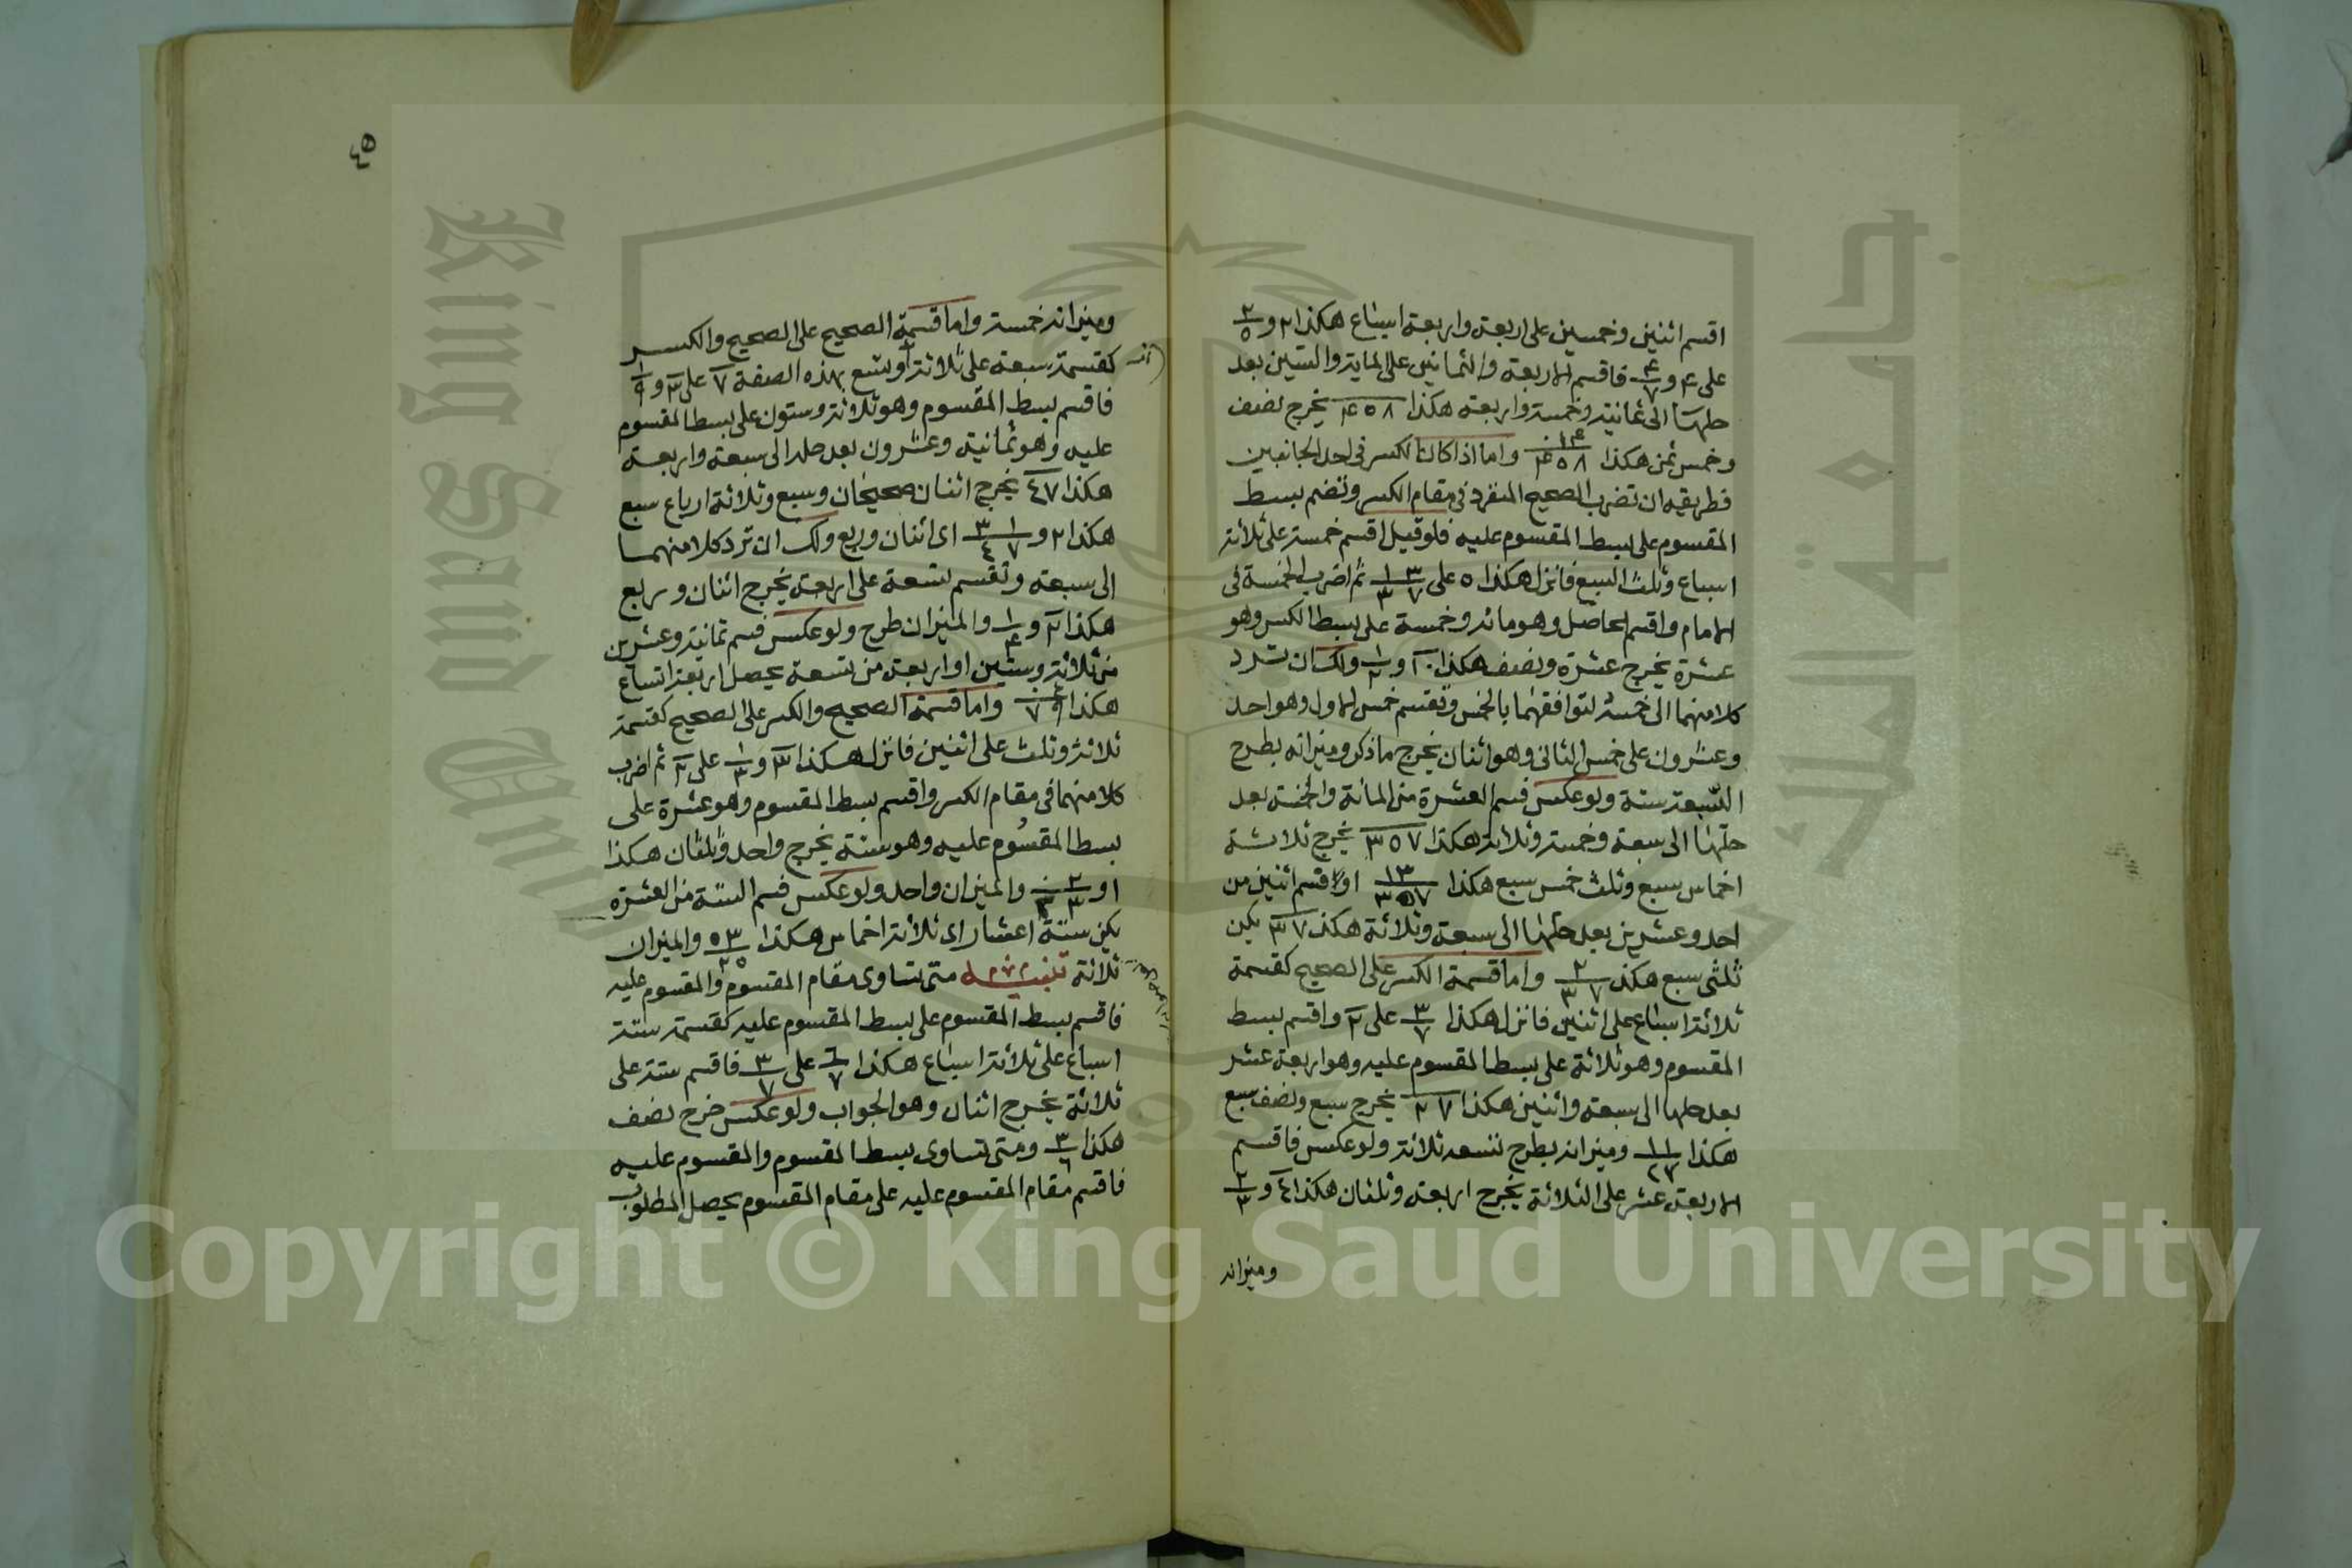 اقسم اثنين وخمسين على اربعة واربعة اسباع هكذا ٢ و ٢/٥
على ٤ و ٤/٧ فاقسم الاربعة والثمانين على الماية والستين بعد
حلها الى ثمانية وخمسة واربعة هكذا ٤٥٨ يخرج نصف
وخمس ثمن هكذا واما اذا كان الكسر في احد الجانبين
فطريقه ان تضرب الصحيح المنفرد في مقام الكسر وتضم بسط
المقسوم على بسط المقسوم عليه فلو قيل اقسم خمسة على ثلاثة
اسباع وثلث السبع فانزل هكذا ٥ على ١ ٣/٣ ٧ ثم اضرب الخمسة في
الامام واقسم الحاصل وهو مائة وخمسة على بسط الكسر وهو
عشرة يخرج عشرة ونصف هكذا ١٠ و ١/٢ ولك ان ترد
كلا منهما الى خمسة لتوافقهما بالخمس وتقسم خمس الاول وهو احد
وعشرون على خمس الثاني وهو اثنان يخرج ما ذكر وميزانه بطرح
التسعة ستة ولو عكس فسم العشرة من المائة والخمسة بعد
حلها الى سبعة وخمسة وثلاثة هكذا ٣٥٧ يخرج ثلاثة
اخماس سبع وثلث خمس سبع هكذا ١٣/٣٥٧ او اقسم اثنين من
احد وعشرين بعد حلها الى سبعة وثلاثة هكذا ٣٧ يكن
ثلثي سبع هكذا ٢/٣٧ واما قسمة الكسر على الصحيح كقسمة
ثلاثة اسباع على اثنين فانزل هكذا ٣/٧ على ٢ واقسم بسط
المقسوم وهو ثلاثة على بسط المقسوم عليه وهو اربعة عشر
بعد حلها الى سبعة واثنين هكذا ٢٧ يخرج سبع ونصف سبع
هكذا ١١/٢٧ وميزانه بطرح تسعة ثلاثة ولو عكس فاقسم
الاربعة عشر على الثلاثة يخرج اربعة وثلثان هكذا ٤ و ٢/٣
وميزانه
٤٥
وميزانه خمسة واما قسمة الصحيح على الصحيح والكسر
كقسمة سبعة على ثلاثة وتسع بهذه الصفة ٧ على ٣ و ١/٩
فاقسم بسط المقسوم وهو ثلاثة وستون على بسط المقسوم
عليه وهو ثمانية وعشرون بعد حله الى سبعة واربعة
هكذا ٤٧ يخرج اثنان صحيحان وسبع وثلاثة ارباع سبع
هكذا ٢ و ٣ ١/٤ ٧ اى اثنان وربع ولك ان ترد كلا منهما
الى سبعه وتقسم تسعة على اربعة يخرج اثنان وربع
هكذا ٢ و ١/٤ والميزان طرح ولو عكس فسم ثمانية وعشرين
من ثلاثة وستين او اربعة من تسعة يحصل اربعة اتساع
هكذا واما قسمة الصحيح والكسر على الصحيح كقسمة
ثلاثة وثلث على اثنين فانزل هكذا ٣ و ١/٣ على ٢ ثم اضرب
كلا منهما في مقام الكسر واقسم بسط المقسوم وهو عشرة على
بسط المقسوم عليه وهو ستة يخرج واحد وثلثان هكذا
١ و ٢/٣ والميزان واحد ولو عكس فسم الستة من العشرة
يكن ستة اعشار اى ثلاثة اخماس هكذا والميزان
ثلاثة تنبيه متى تساوى مقام المقسوم والمقسوم عليه
فاقسم بسط المقسوم على بسط المقسوم عليه كقسمة ستة
اسباع على ثلاثة اسباع هكذا ٦/٧ على ٣/٧ فاقسم ستة على
ثلاثة يخرج اثنان وهو الجواب ولو عكس خرج نصف
هكذا ٣/٦ ومتى تساوى بسط المقسوم والمقسوم عليه
فاقسم مقام المقسوم عليه على مقام المقسوم يحصل المطلوب
King Saud University
جامعة الملك
Copyright © King Saud University